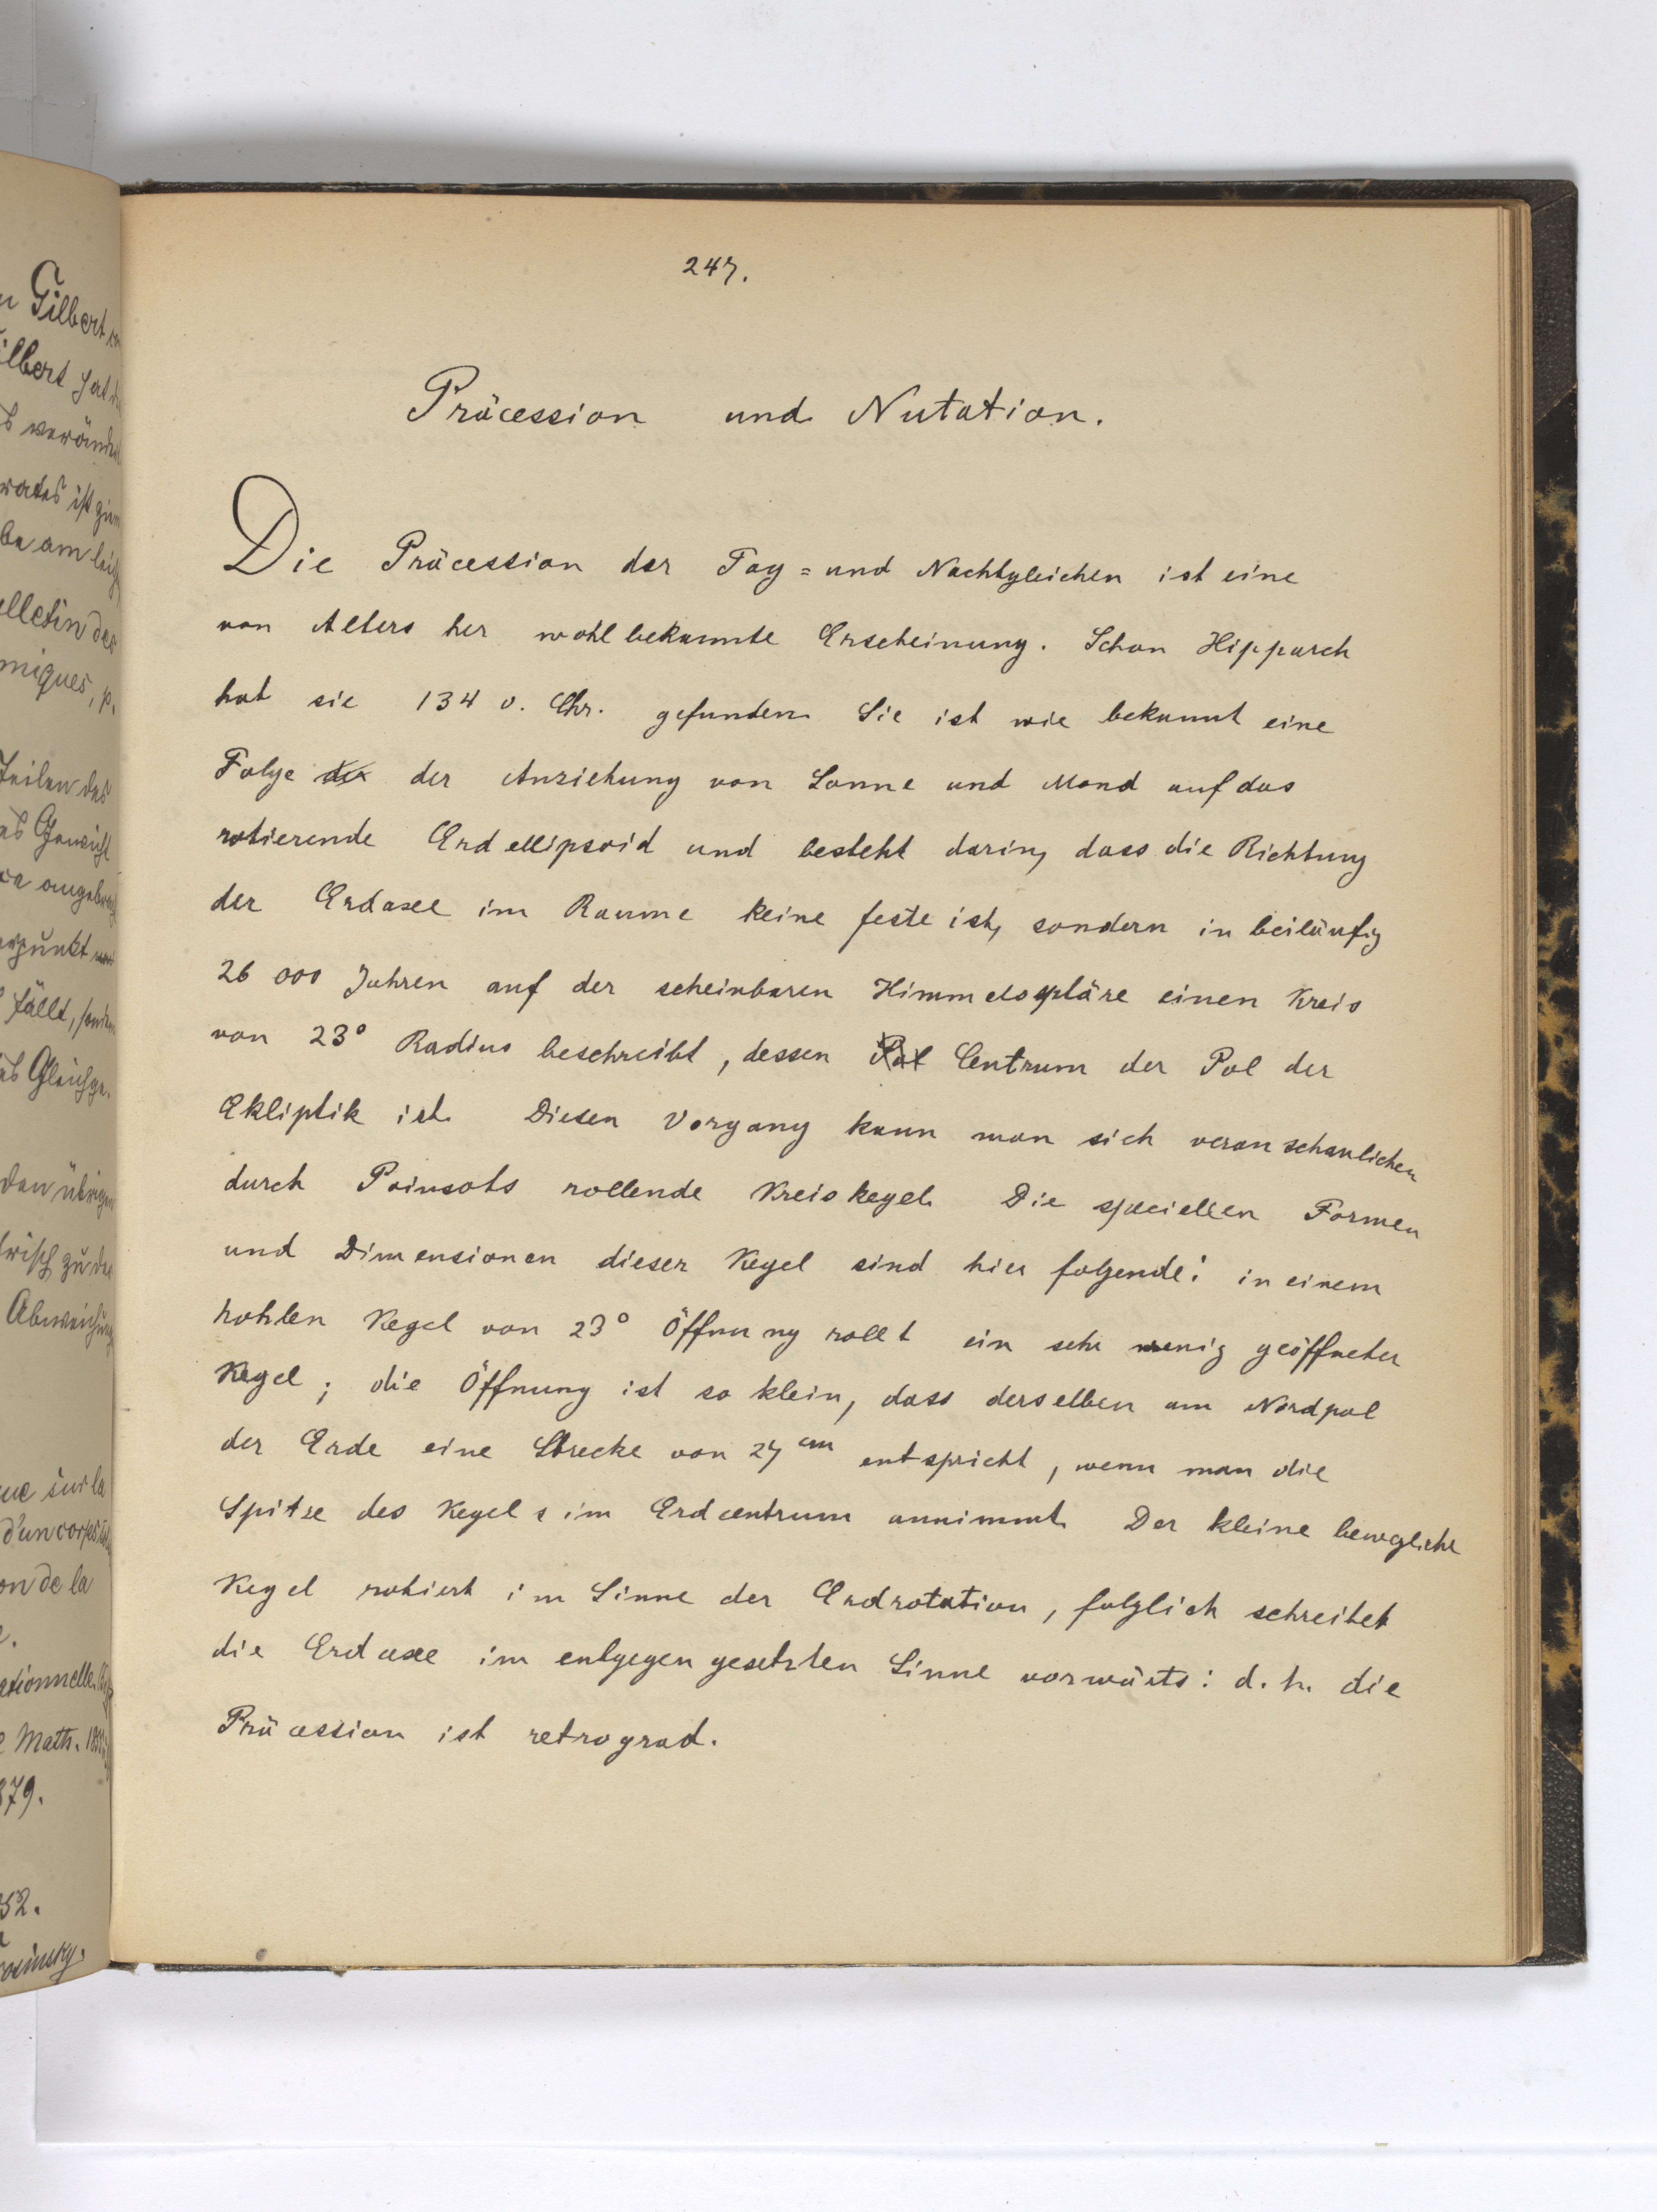 247.
Präcession und Nutation.
Die Präcession der Tag= und Nachtgleichen ist eine
von Alters her wohlbekannte Erscheinung. Schon Hipparch
hat sie 134 v. Chr. gefunden. Sie ist wie bekannt eine
Folge der der Anziehung von Sonne und Mond auf das
rotierende Erdellipsoid und besteht darin, dass die Richtung
der Erdaxe im Raume keine feste ist, sondern in beiläufig
26 000 Jahren auf der scheinbaren Himmelsspläre einen Kreis
von 23° Radius beschreibt, dessen Pol Centrum der Pol der
Ekliptik ist. Diesen Vorgang kann man sich veranschaulichen
durch Poinsots rollende Kreiskegel. Die speciellen Formen
und Dimensionen dieser Kegel sind hier folgende: in einem
hohlen Kegel von 23° Öffnung rollt ein sehr wenig geöffneter
Kegel; die Öffnung ist so klein, dass derselben am Nordpol
der Erde eine Strecke von 27 cm entspricht, wenn man die
Spitze des Kegels im Erdcentrum annimmt. Der kleine bewegliche
Kegel rotiert im Sinne der Erdrotation, folglich schreitet
die Erdaxe im entgegengesetzten Sinne vorwärts: d. h. die
Präcession ist retrograd.